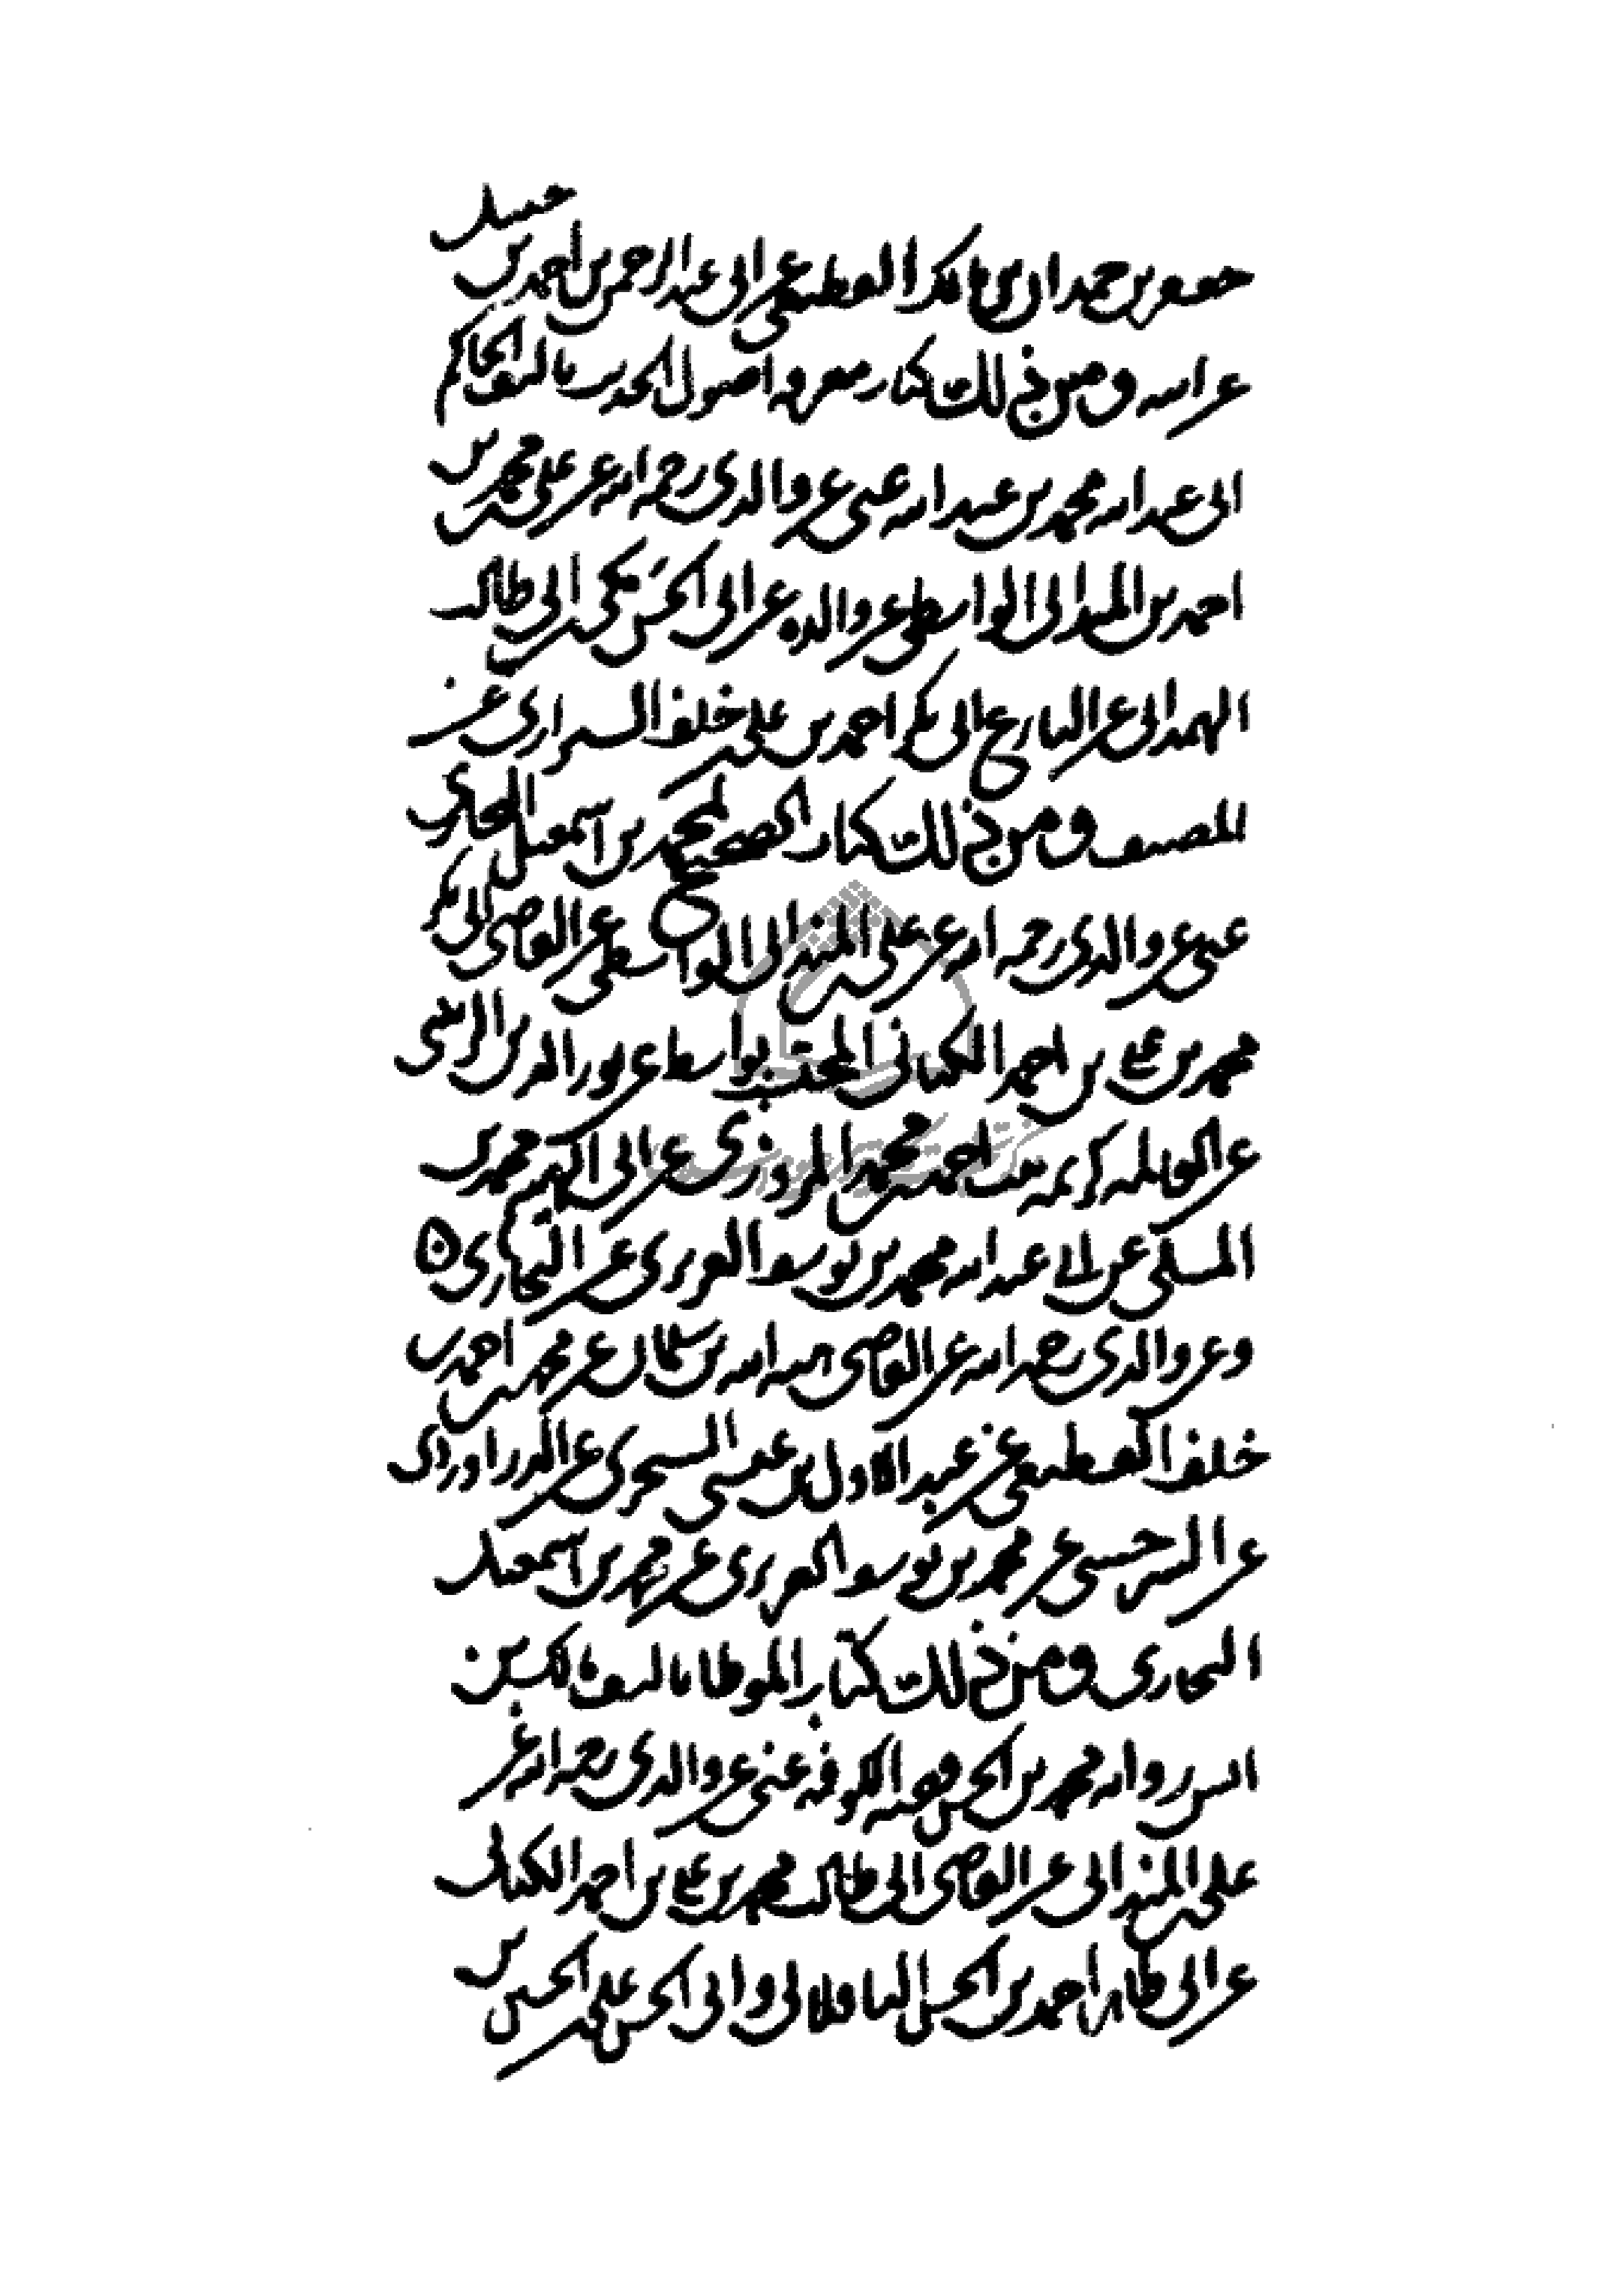 جعفر بن حمدان بن مالك القطيعي عن ابي عبد الرحمن بن احمد بن حنبل
عن ابيه ومن ذلك كتاب معرفة اصول الحديث تاليف الحاكم
ابي عبد الله محمد بن عبد الله عني عن والدي رحمه الله عن علي بن محمد بن
احمد بن المنداي الواسطي عن والده عن ابي الحسن مكي بن ابي طالب
الهمداني عن البارع ابي بكر احمد بن علي بن خلف الشيرازي عن
المصنف ومن ذلك كتاب الصحيح لمحمد بن اسمعيل البخاري
عني عن والدي رحمه الله عن علي بن المنداي الواسطي عن القاضي ابي بكر
محمد بن علي بن احمد الكتاني المحتسب بواسط عن نور الدين الزينبي
عن العالمه كريمه بنت احمد بن محمد المروزي عن ابي الهيثم محمد بن
المكي عن ابي عبد الله محمد بن يوسف الفربري عن البخاري ن
وعن والدي رحمه الله عن القاضي هبه الله بن سلمان عن محمد بن احمد بن
خلف القطيعي عن عبد الاول بن عيسى السجزي عن الدراوردي
عن السرخسي عن محمد بن يوسف الفربري عن محمد بن اسمعيل
البخاري ومن ذلك كتاب الموطا تاليف مالك بن
انس رواية محمد بن الحسن فقيه الكوفة عني عن والدي رحمه الله عن
علي بن المنداي عن القاضي ابي طالب محمد بن علي بن احمد الكتاني
عن ابي طاهر احمد بن الحسن الباقلاني وابي الحسن علي بن الحسين بن